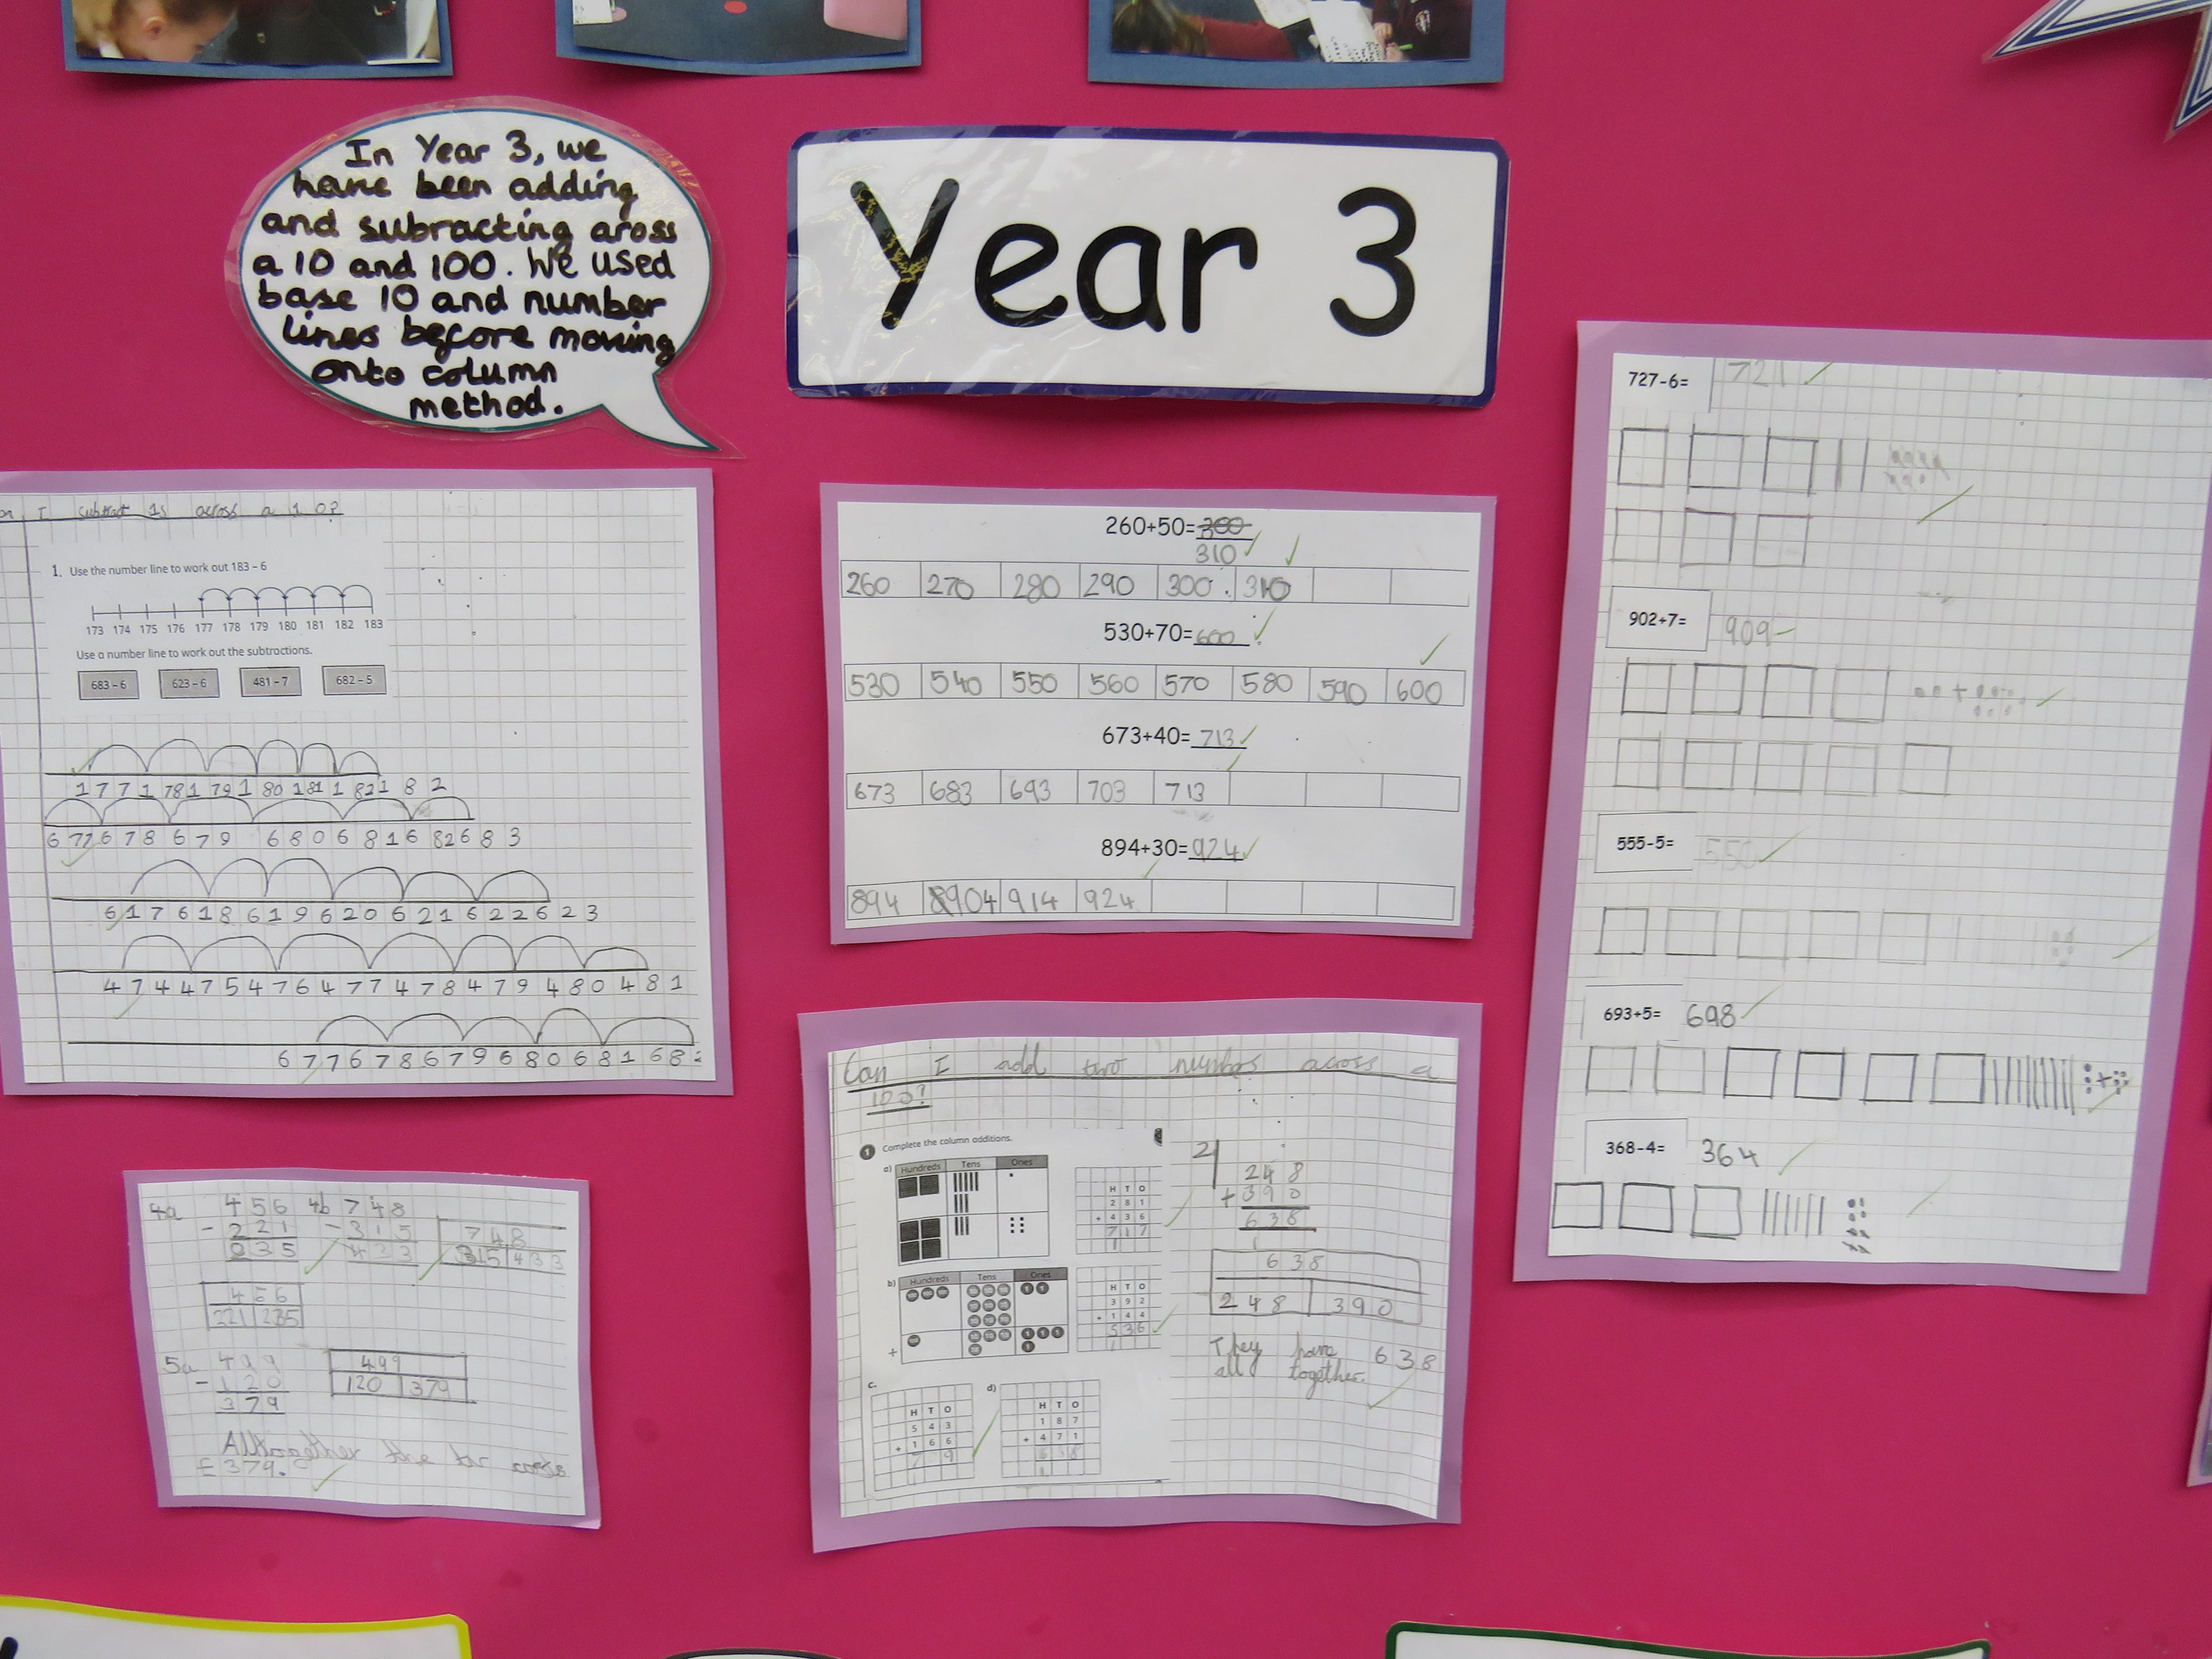 In Year 3, we
have been adding
and subracting aross
a 10 and 100. We used
base 10 and number
lines before moving
onto column
method.
Year 3
I subtract 1s across a 10?
1. Use the number line to work out 183 – 6
173 174 175 176 177 178 179 180 181 182 183
Use a number line to work out the subtractions.
683 – 6 623 – 6 481 – 7 682 – 5
177 178 179 180 181 182 182
677 678 679 680 681 682 683
617 618 619 620 621 622 623
474 475 476 477 478 479 480 481
677 678 679 680 681 68
260+50=300
310
260 270 280 290 300 310
530+70=600
530 540 550 560 570 580 590 600
673+40=713
673 683 693 703 713
894+30=924
894 904 914 924
727-6= 721
902+7= 909
+
555-5= 550
693+5= 698
+
368-4= 364
4a 456 4b 748
- 221 - 315 748
235 433 315 433
456
221 235
5a 499 499
- 120 120 379
379
Alltogether the car costs
£379.
Can I add two numbers across a
100?
1 Complete the column additions.
a) Hundreds Tens Ones
H T O
2 8 1
+ 4 3 6
7 1 7
1
b) Hundreds Tens Ones
+
H T O
3 9 2
+ 1 4 4
5 3 6
1
c.
H T O
5 4 3
+ 1 6 6
7 9
d)
H T O
1 8 7
+ 4 7 1
6 5 8
1
2
248
+390
638
1
638
248 390
They have 638
all together.